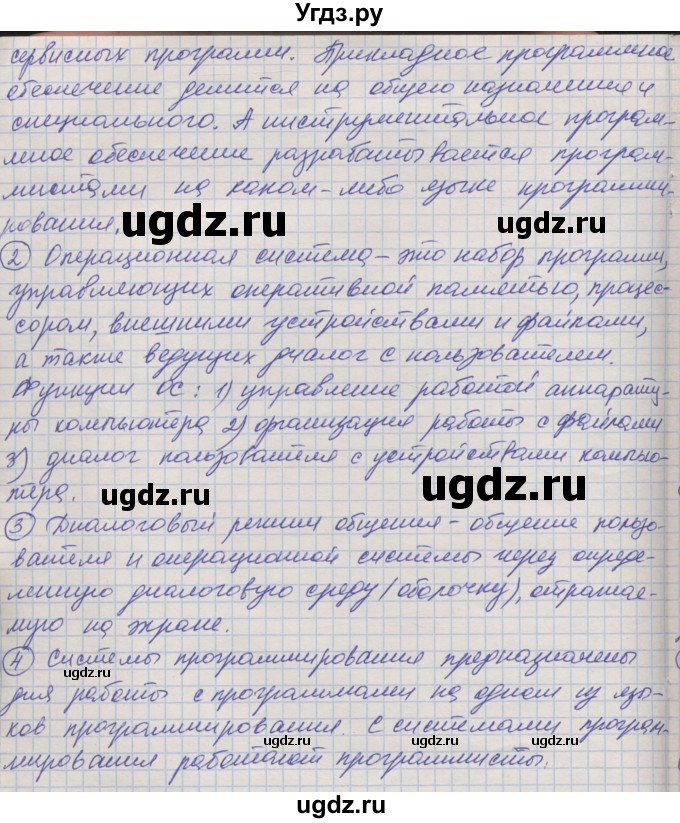 Угдз.ру
сервисных программ. Прикладное программное
обеспечение делится на общего назначения и
специального. А инструментальное програм-
мное обеспечение разрабатывается програм-
мистами на каком-либо языке программи-
рования.
ugdz.ru ugdz.ru
2 Операционная система - это набор программ,
управляющих оперативной памятью, процес-
сором, внешними устройствами и файлами,
а также ведущих диалог с пользователем.
Функции ОС: 1) управление работой аппарату-
ры компьютера 2) организация работы с файлами
3) диалог пользователя с устройствами компью-
тера.
ugdz.ru ugdz.ru
3 Диалоговый режим общения - общение пользо-
вателя и операционной системы через опреде-
ленную диалоговую среду (оболочку), отражае-
мую на экране.
ugdz.ru
4 Системы программирования предназначены
для работы с программами на одном из язы-
ков программирования. С системами програм-
мирования работают программисты.
ugdz.ru ugdz.ru
ugdz.ru